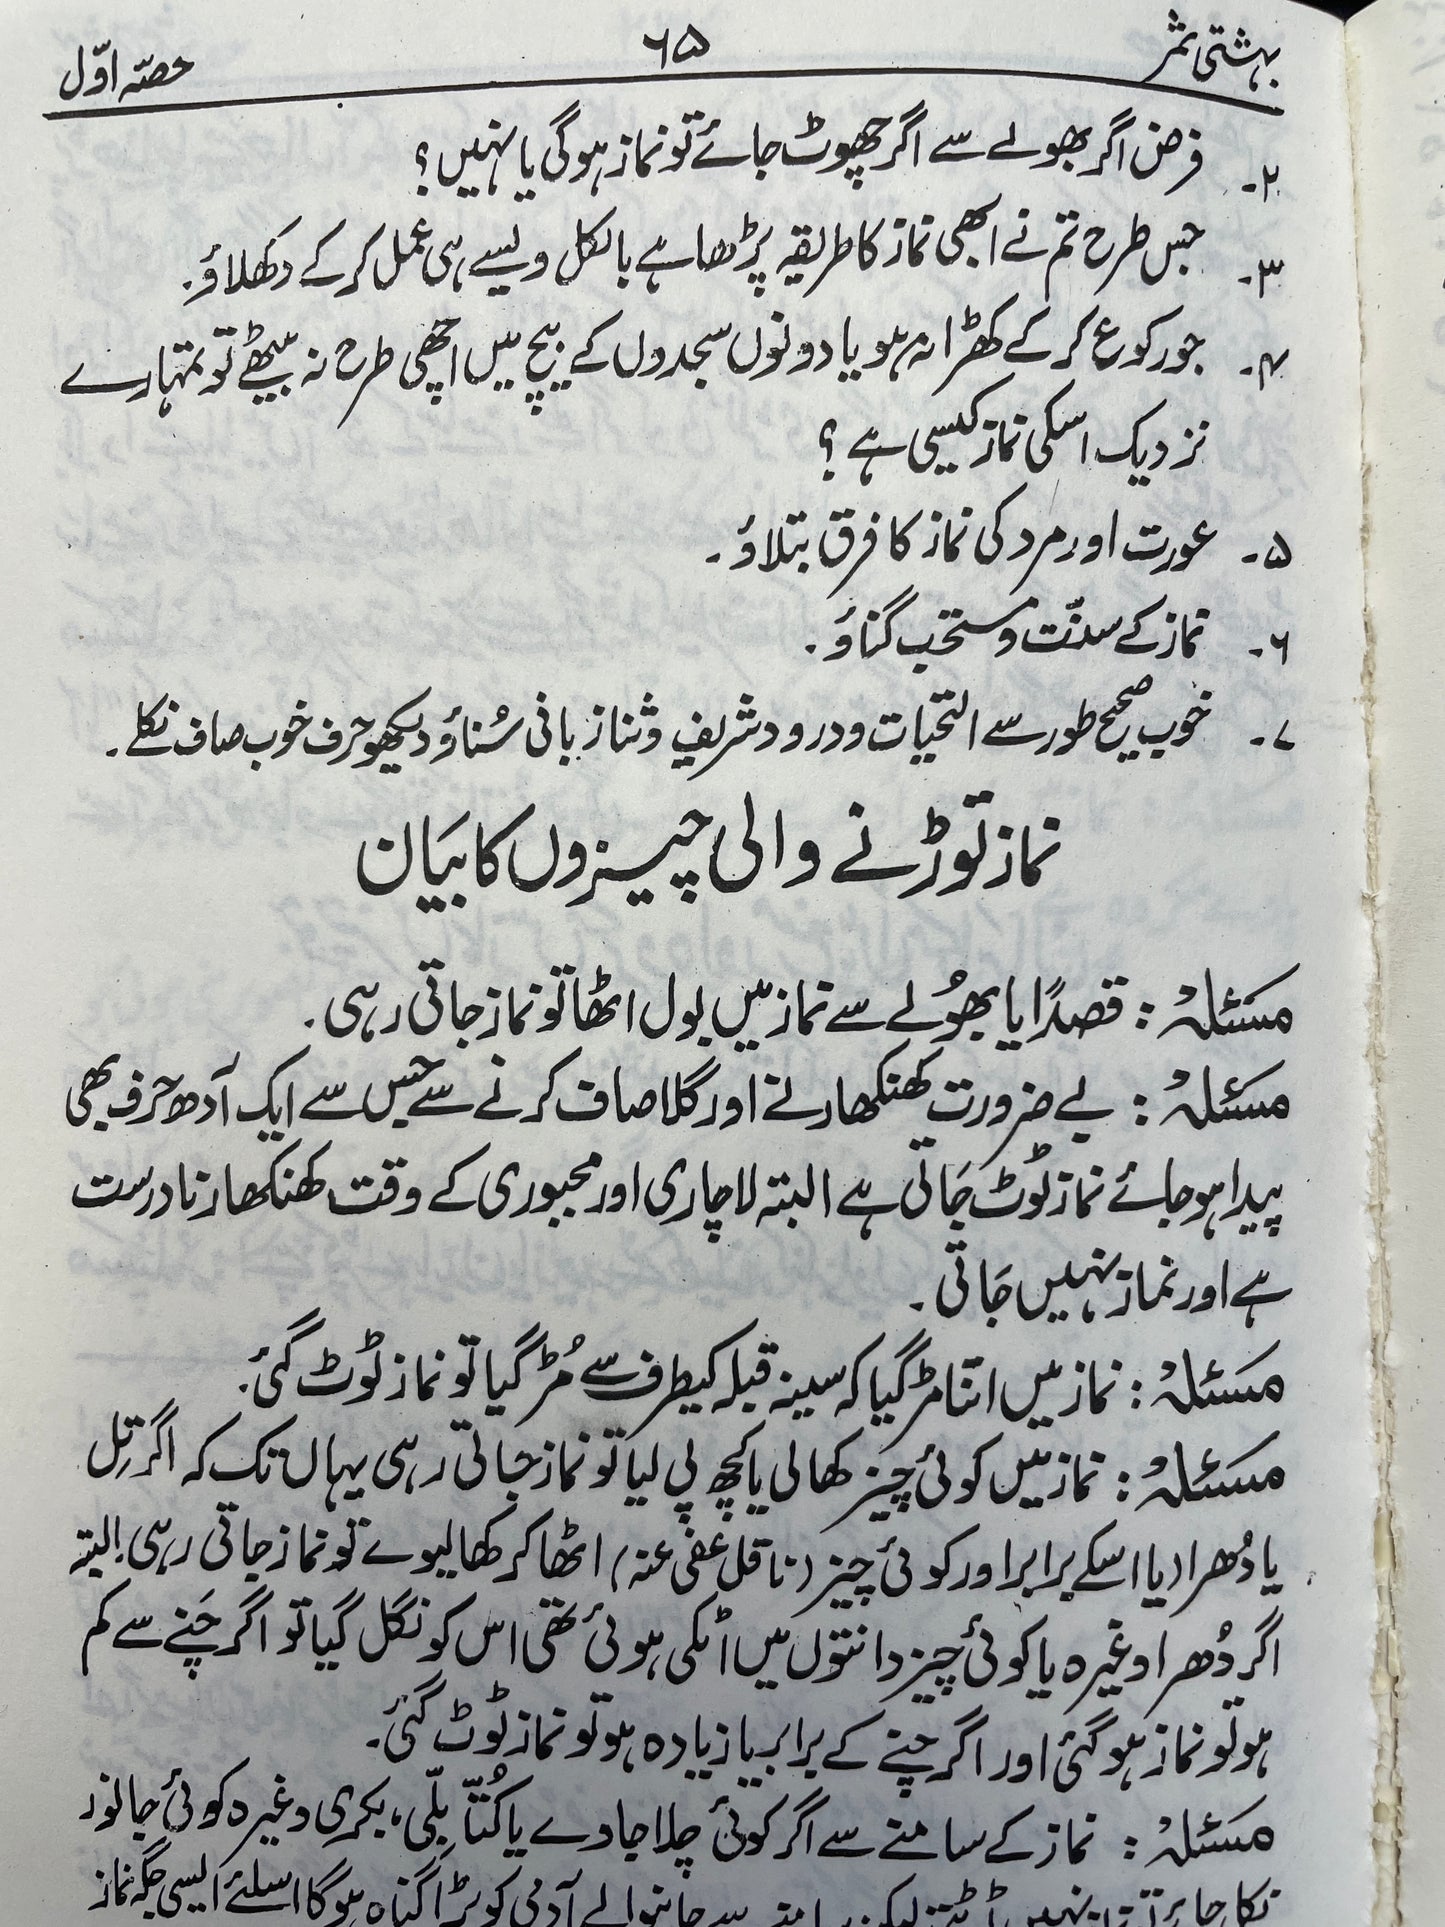 بہشتی ثمر
۶۵
حصّہ اوّل
۲- فرض اگر بھولے سے اگر چھوٹ جائے تو نماز ہوگی یا نہیں؟
۳- جس طرح تم نے ابھی نماز کا طریقہ پڑھا ہے بالکل ویسے ہی عمل کر کے دکھلاؤ۔
۴- جو رکوع کر کے کھڑا نہ ہو یا دونوں سجدوں کے بیچ میں اچھی طرح نہ بیٹھے تو تمہارے
نزدیک اسکی نماز کیسی ہے؟
۵- عورت اور مرد کی نماز کا فرق بتلاؤ۔
۶- نماز کے سنّت و مستحب گناؤ۔
۷- خوب صحیح طور سے التحیات و درود شریف و ثنا زبانی سُناؤ دیکھو حرف خوب صاف نکلے۔
نماز توڑنے والی چیزوں کا بیَان
مسَئلہ: قصدًا یا بھُولے سے نماز میں بول اٹھا تو نماز جاتی رہی۔
مسَئلہ: بے ضرورت کھنکھارنے اور گلا صاف کرنے سے جس سے ایک آدھ حرف بھی
پیدا ہو جائے نماز ٹوٹ جَاتی ہے البتہ لاچاری اور مجبوری کے وقت کھنکھارنا درست
ہے اور نماز نہیں جَاتی۔
مسَئلہ: نماز میں اتنا مڑ گیا کہ سینہ قبلہ کیطرف سے مُڑ گیا تو نماز ٹوٹ گئی۔
مسَئلہ: نماز میں کوئی چیز کھالی یا کچھ پی لیا تو نماز جاتی رہی یہاں تک کہ اگر تِل
یا دُھرا (یا اسکے برابر اور کوئی چیز (ناقل عفی عنہ) اٹھا کر کھا لیوے تو نماز جاتی رہی۔ البتہ
اگر دُھرا وغیرہ یا کوئی چیز دانتوں میں اٹکی ہوئی تھی اس کو نگل گیا تو اگر چَنے سے کم
ہو تو نماز ہو گئی اور اگر چنے کے برابر یا زیادہ ہو تو نماز ٹوٹ گئی۔
مسَئلہ: نماز کے سامنے سے اگر کوئی چلا جاوے یا کُتّا بلّی، بکری وغیرہ کوئی جانور
نکل جائے تو نماز نہیں ٹوٹتی لیکن سامنے سے جانیوالے آدمی کو بڑا گناہ ہو گا اسلئے ایسی جگہ نماز